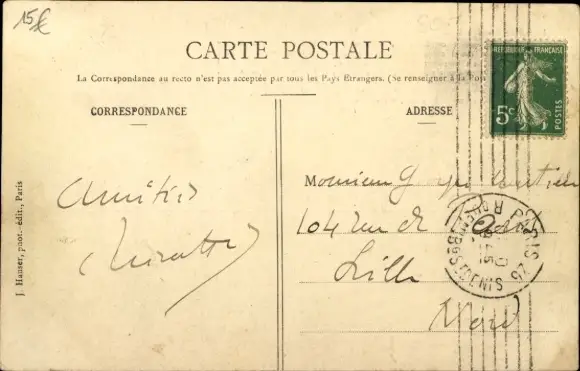 15€
CARTE POSTALE
La Correspondance au recto n'est pas acceptée par tous les Pays Etrangers. (Se renseigner à la Pos
CORRESPONDANCE
ADRESSE
REPUBLIQUE FRANÇAISE
5c
POSTES
Amitiés
Monsieur
104 rue de
Lille
Nord
PARIS 25
R. DU FBG ST DENIS
J. Hauser, phot.-édit., Paris